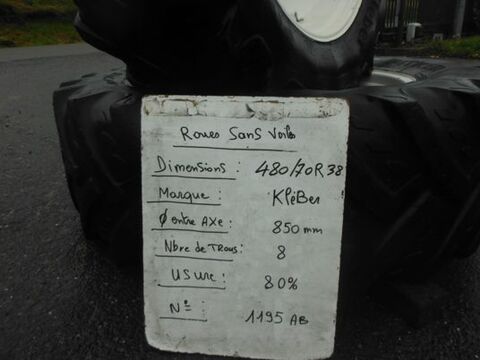 Roues Sans Voiles
Dimensions : 480/70R38
Marque : KléBer
Ø entre AXe : 850 mm
Nbre de Trous : 8
USure : 80%
N° : 1195 AB